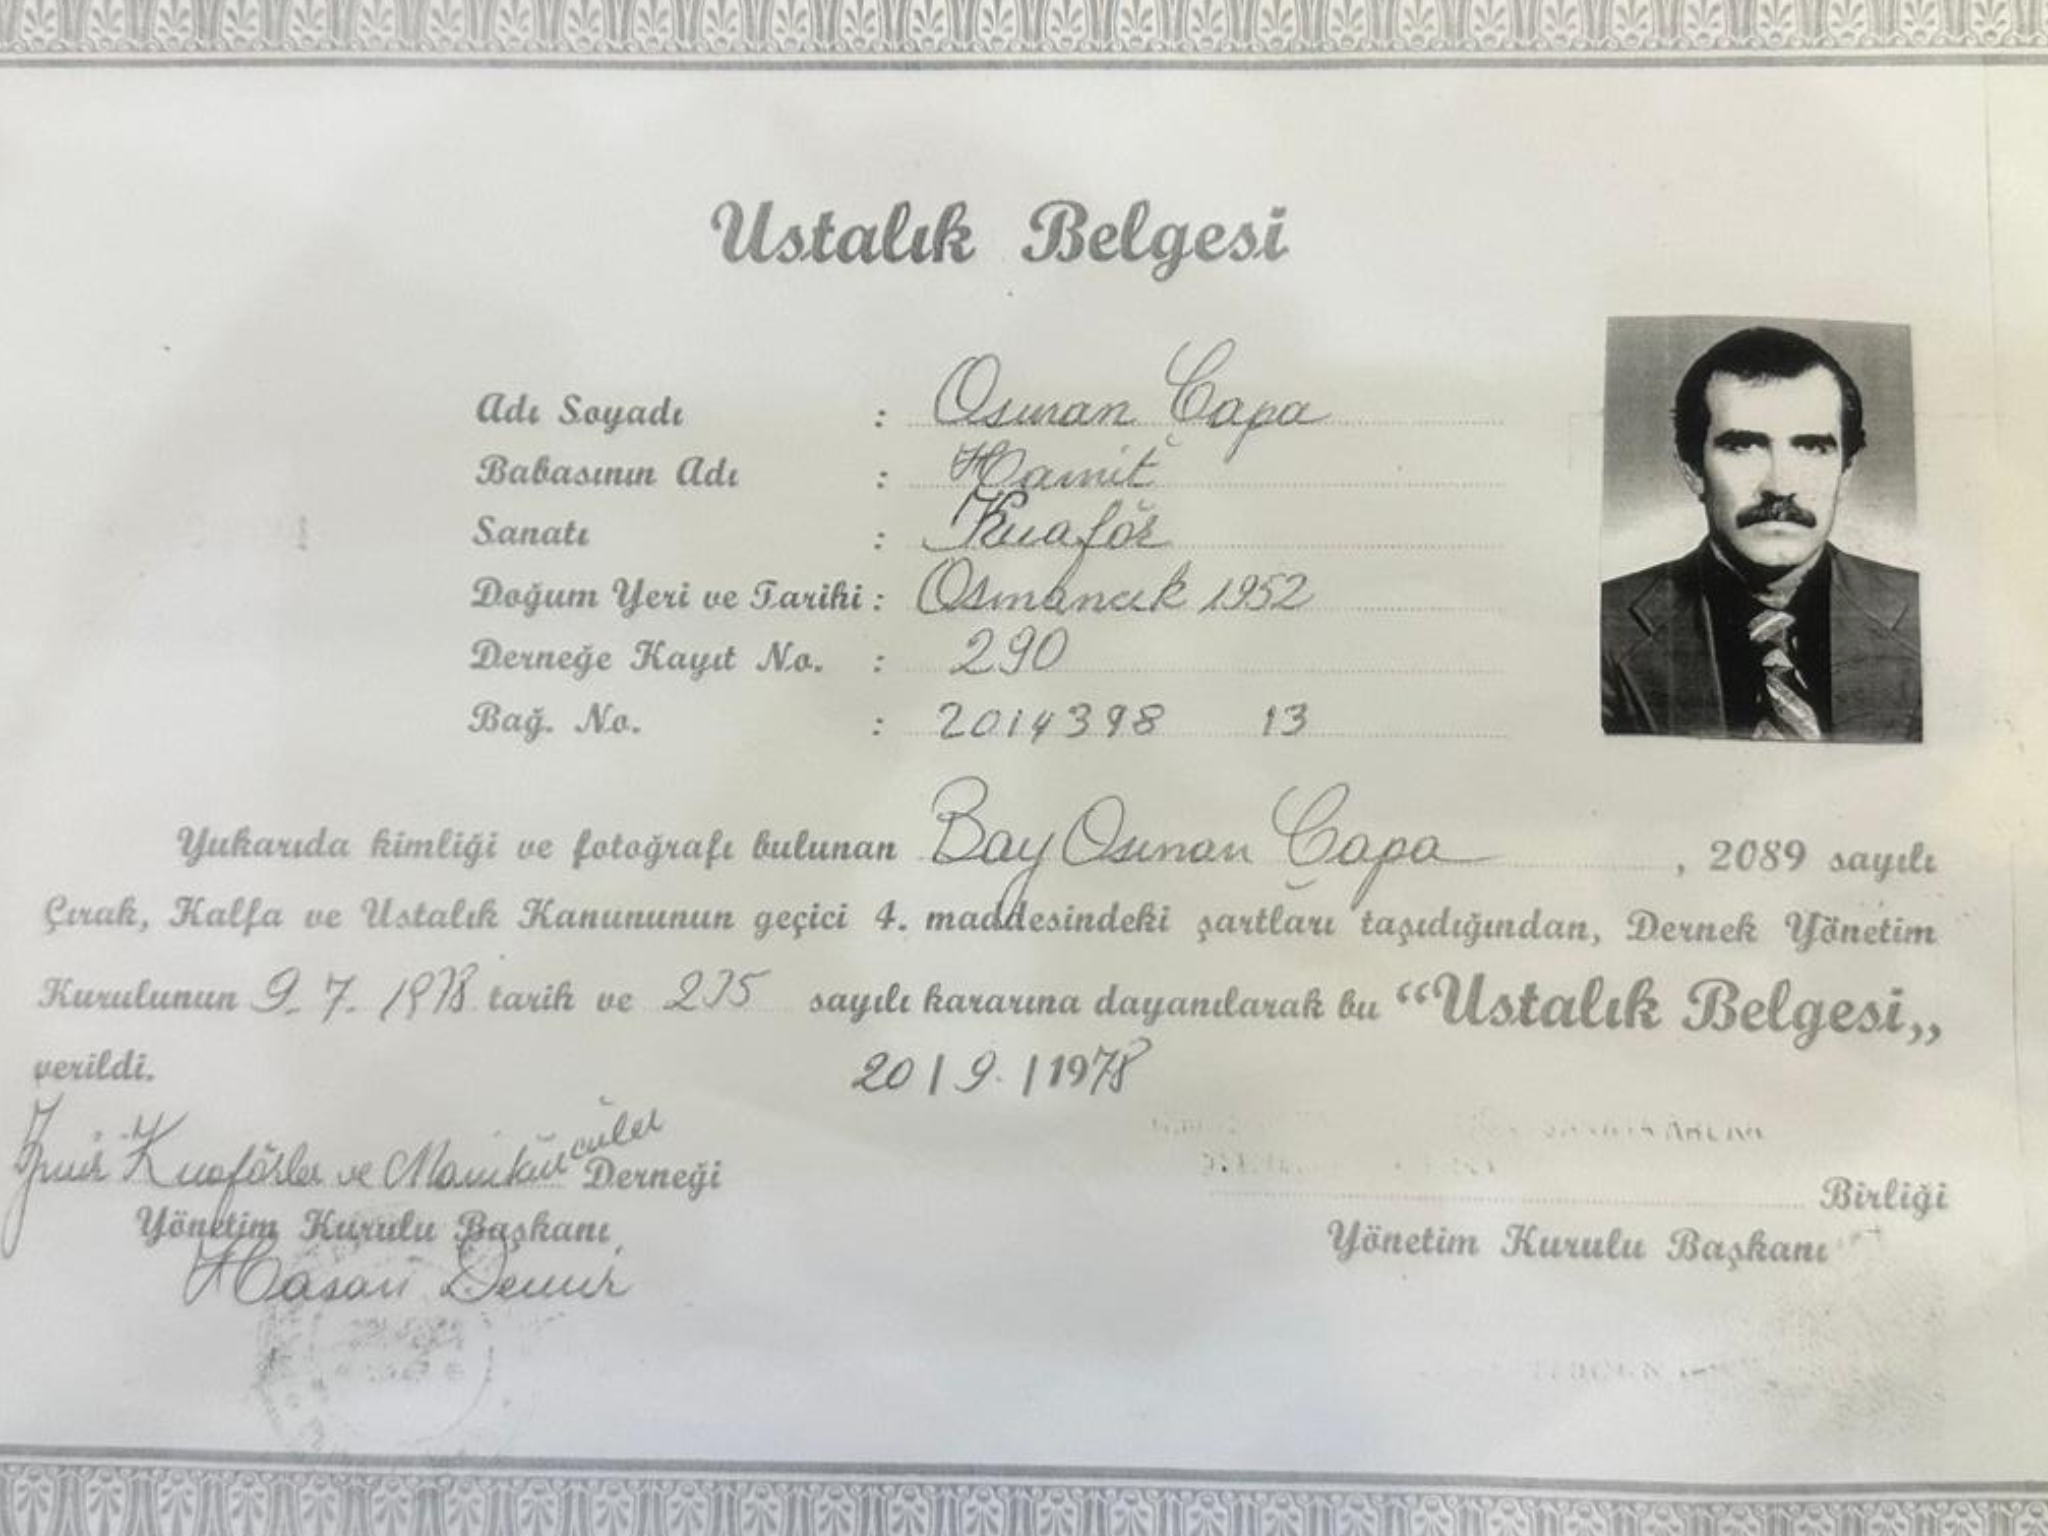 Ustalık Belgesi
Adı Soyadı : Osman Çapa
Babasının Adı : Hamit
Sanatı : Kuaför
Doğum Yeri ve Tarihi : Osmancık 1952
Derneğe Kayıt No. : 290
Bağ. No. : 2014398 13
Yukarıda kimliği ve fotoğrafı bulunan Bay Osman Çapa , 2089 sayılı
Çırak, Kalfa ve Ustalık Kanununun geçici 4. maddesindeki şartları taşıdığından, Dernek Yönetim
Kurulunun 9.7.1978 tarih ve 235 sayılı kararına dayanılarak bu “Ustalık Belgesi„
verildi. 20/9./1978
İzmir Kuaförler ve Manikürcüler Derneği
Birliği
Yönetim Kurulu Başkanı
Yönetim Kurulu Başkanı
Hasan Demir